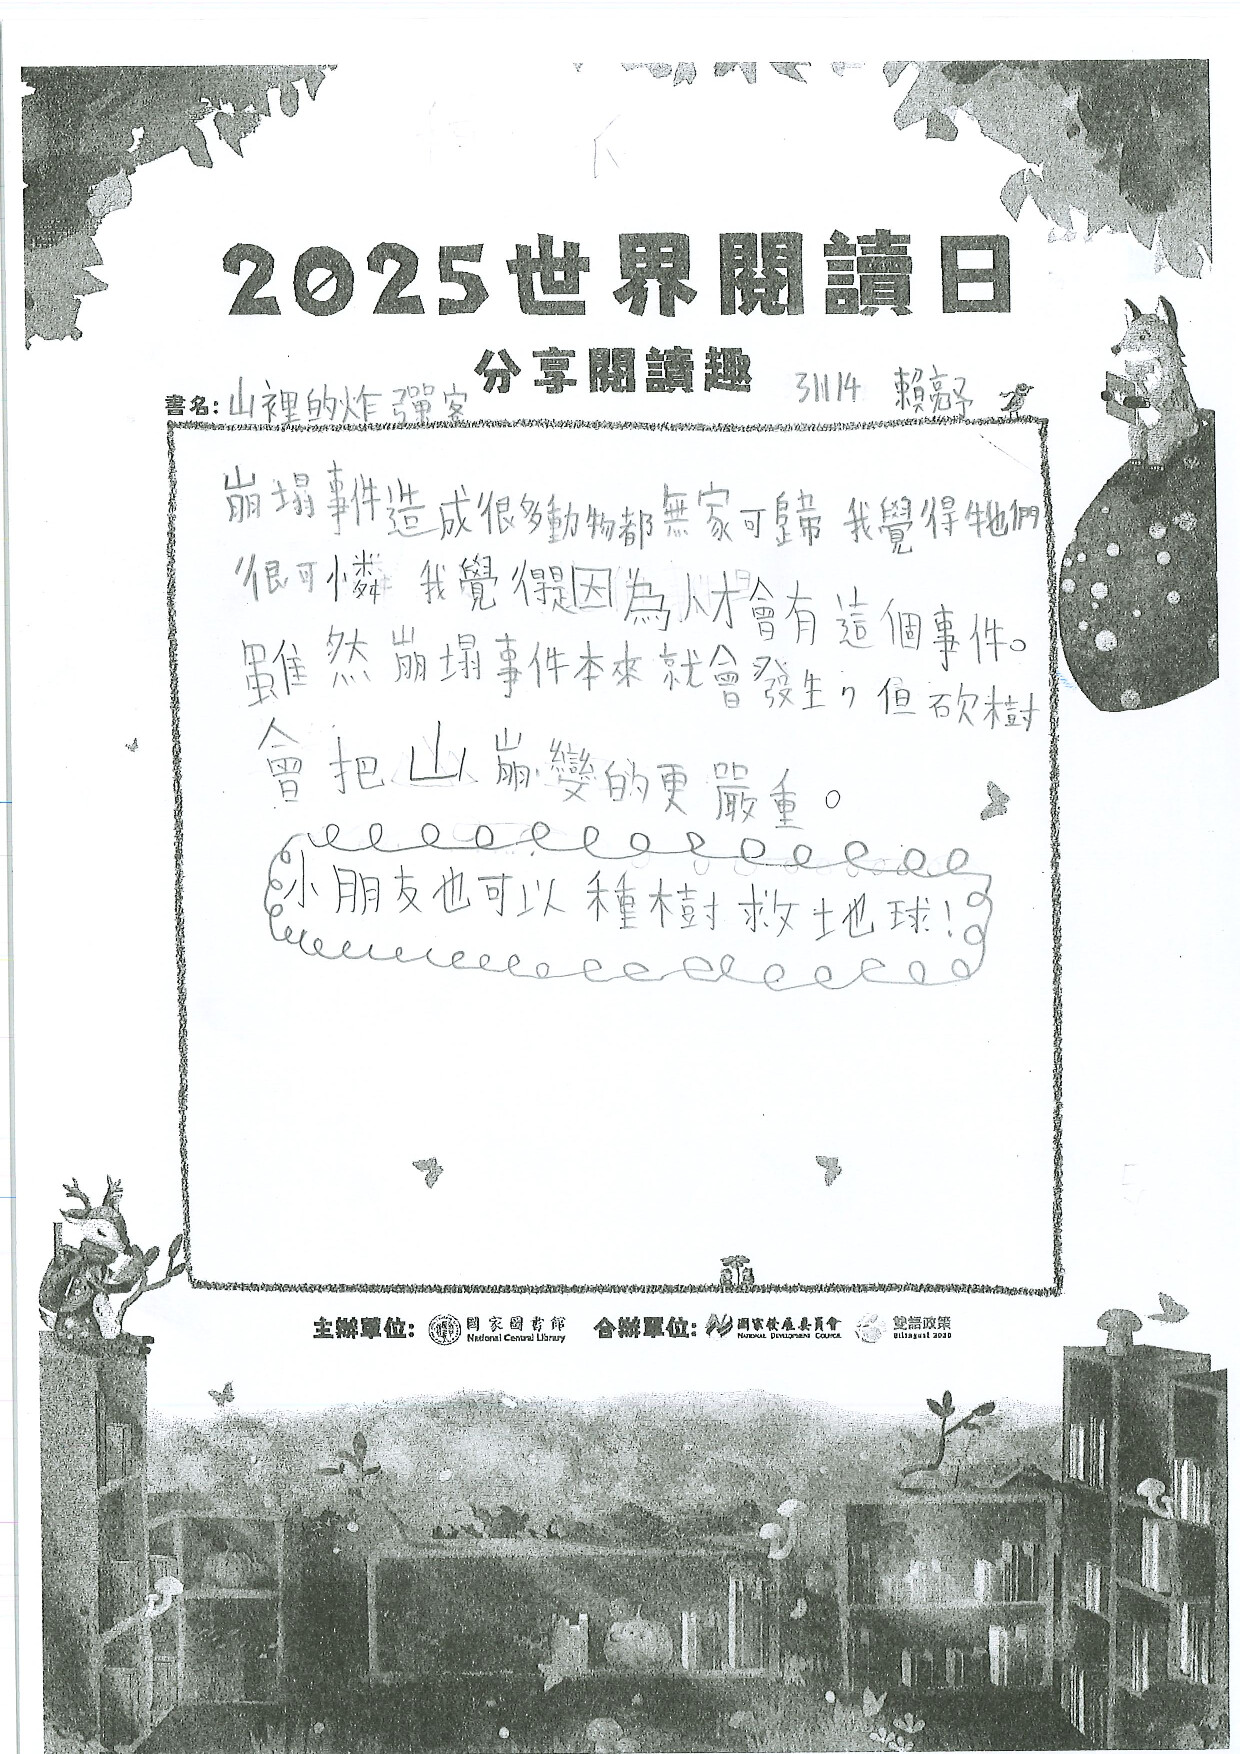 2025世界閱讀日
分享閱讀趣
書名:山裡的炸彈客 31114 賴亮予
崩塌事件造成很多動物都無家可歸 我覺得牠們
很可憐 我覺得是因為人才會有這個事件。
雖然崩塌事件本來就會發生,但砍樹
會把山崩變的更嚴重。
小朋友也可以種樹救地球!
主辦單位: 國家圖書館 National Central Library 合辦單位: 國家發展委員會 NATIONAL DEVELOPMENT COUNCIL 雙語政策 Bilingual 2030